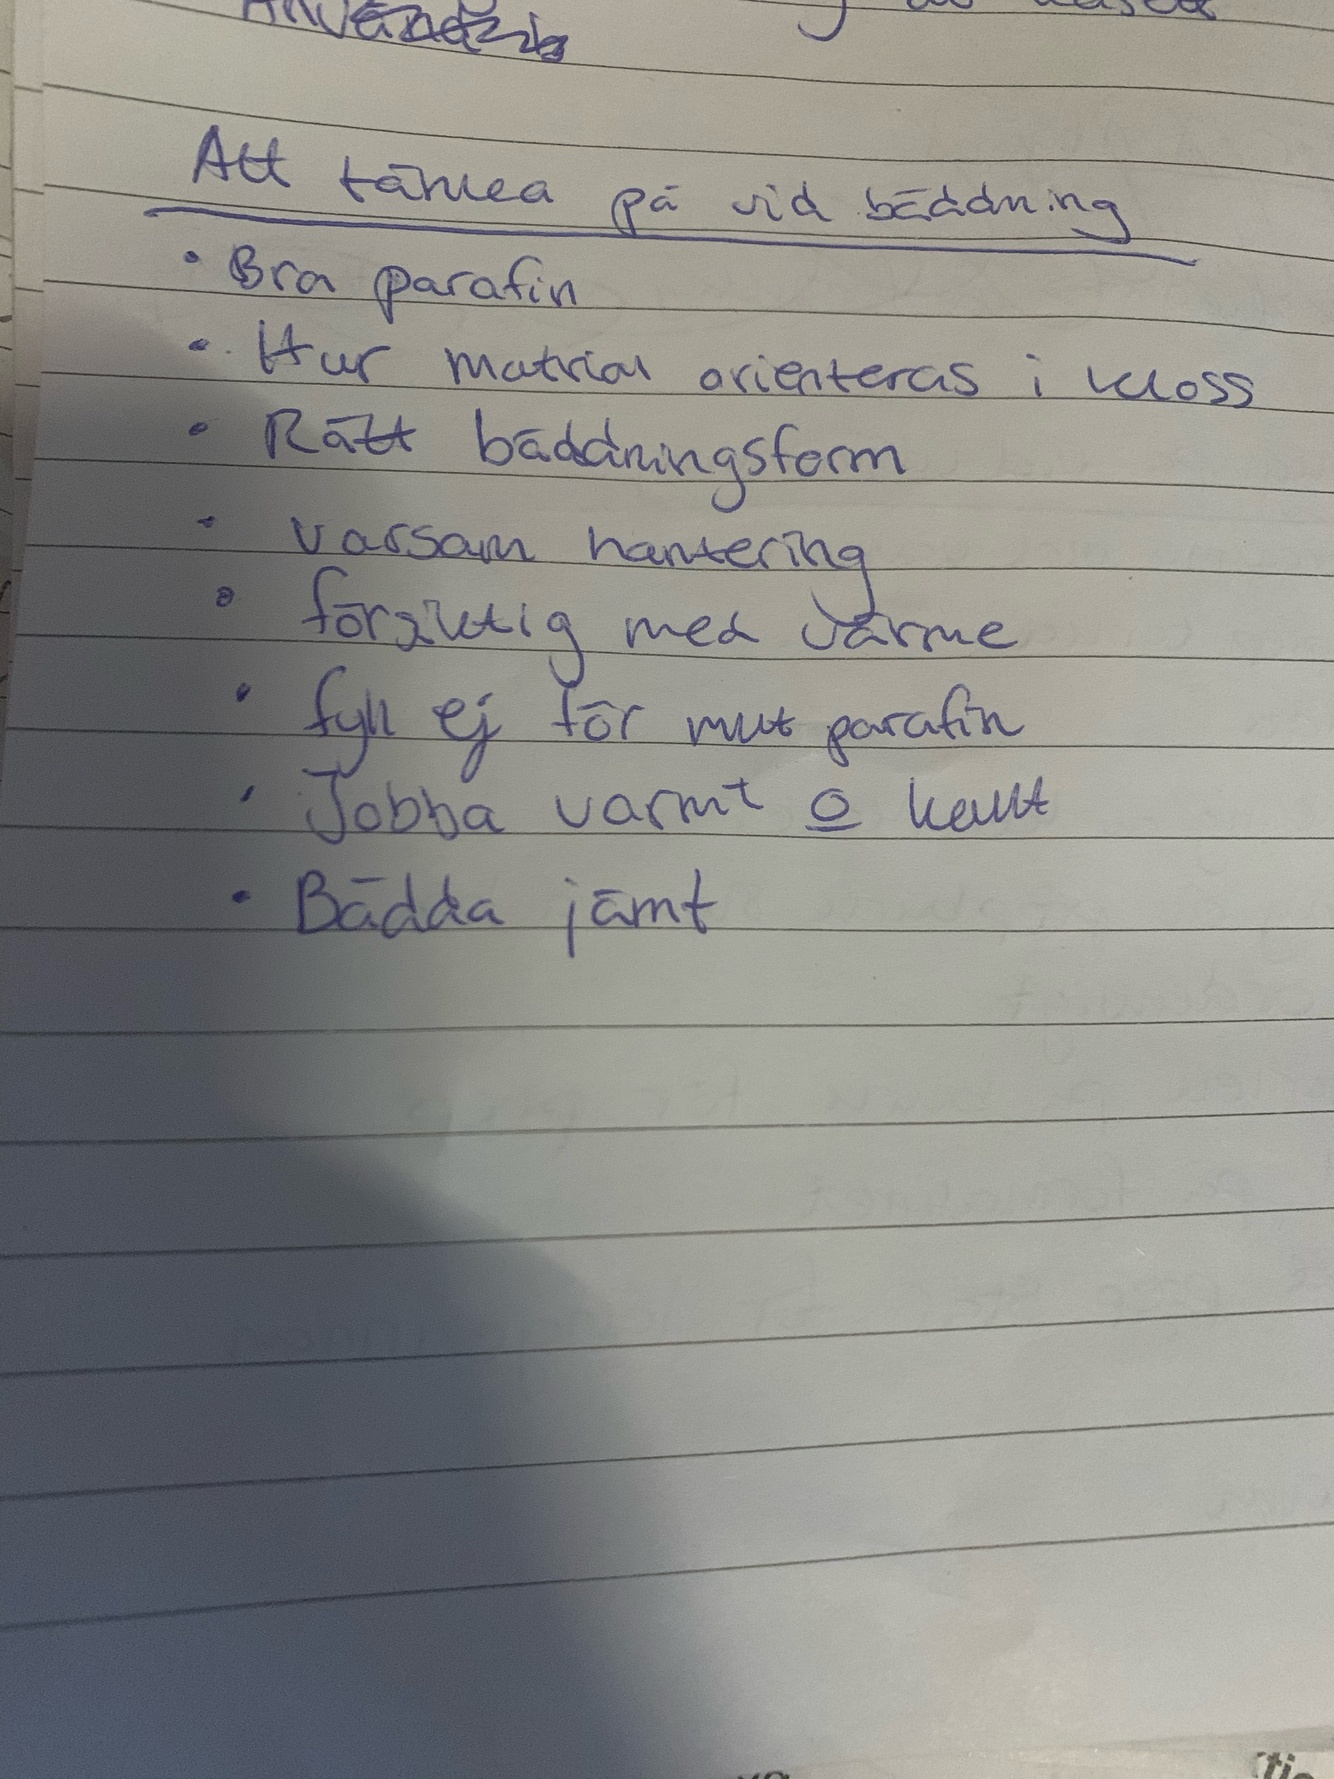 Att tänka på vid bäddning
• Bra parafin
• Hur matrial orienteras i kloss
• Rätt bäddningsform
• varsam hantering
• försiktig med värme
• fyll ej för mkt parafin
• Jobba varmt o kallt
• Bädda jämt